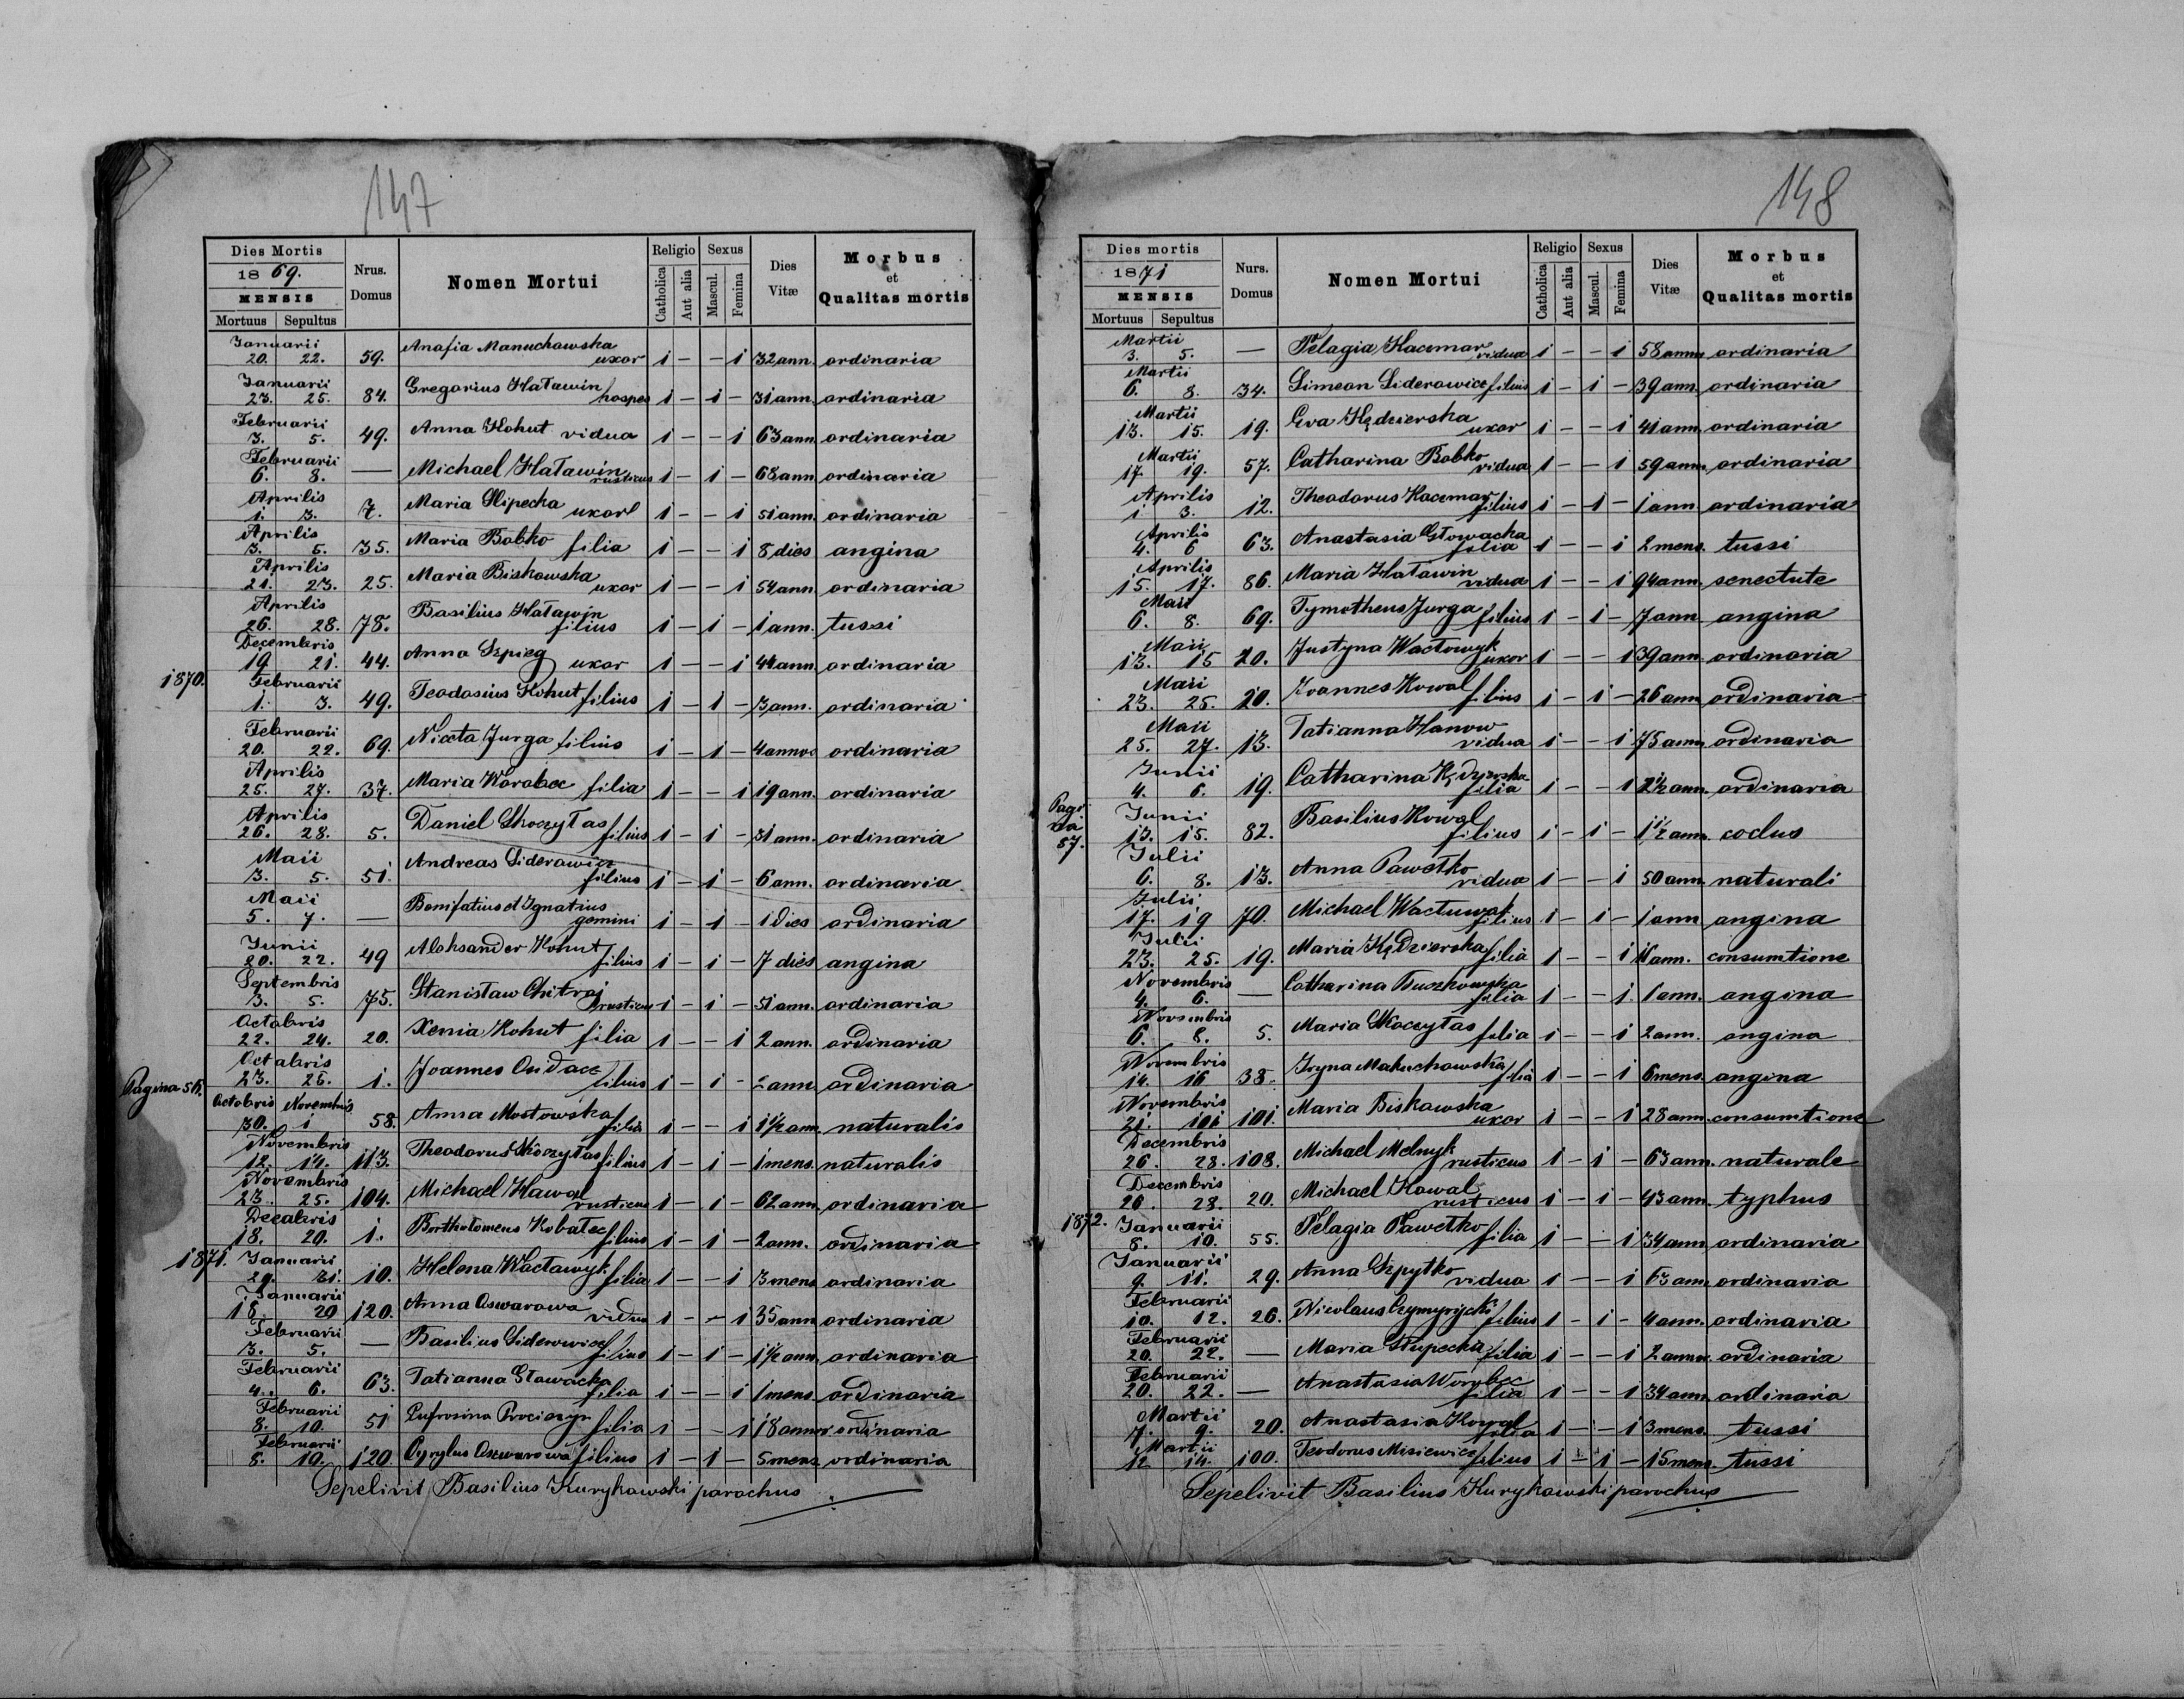 147
Dies Mortis
1869.
MENSIS
Mortuus Sepultus
Nrus. Domus
Nomen Mortui
Religio
Catholica Aut alia
Sexus
Mascul. Femina
Dies Vitæ
Morbus et Qualitas mortis
Januarii 20. 22. 59. Anafia Manuchowska uxor 1 - - 1 32 ann. ordinaria
Januarii 23. 25. 84. Gregorius Hatawin hospes 1 - 1 - 31 ann. ordinaria
Februarii 3. 5. 49. Anna Kohut vidua 1 - - 1 63 ann. ordinaria
Februarii 6. 8. — Michael Hatawin rusticus 1 - 1 - 68 ann. ordinaria
Aprilis 1. 3. 7. Maria Slipecka uxor 1 - - 1 51 ann. ordinaria
Aprilis 3. 5. 35. Maria Bobko filia 1 - - 1 8 dies angina
Aprilis 21. 23. 25. Maria Biskowska uxor 1 - - 1 54 ann. ordinaria
Aprilis 26. 28. 78. Basilius Hatawin filius 1 - 1 - 1 ann. tussi
Decembris 19 21. 44. Anna Szpieg uxor 1 - - 1 44 ann. ordinaria
1870. Februarii 1. 3. 49. Teodosius Kohut filius 1 - 1 - 3 ann. ordinaria
Februarii 20. 22. 69. Niceta Jurga filius 1 - 1 - 4 annos ordinaria
Aprilis 25. 27. 37. Maria Worobec filia 1 - - 1 19 ann. ordinaria
Aprilis 26. 28. 5. Daniel Skoczytas filius 1 - 1 - 31 ann. ordinaria
Maii 3. 5. 51. Andreas Siderowicz filius 1 - 1 - 6 ann. ordinaria
Maii 5. 7. — Bonifatius et Ignatius gemini 1 - 1 - 1 dies ordinaria
Junii 20. 22. 49 Aleksander Kohut filius 1 - 1 - 7 dies angina
Septembris 3. 5. 75. Stanisław Chitraj rusticus 1 - 1 - 51 ann. ordinaria
Octobris 22. 24. 20. Xenia Kohut filia 1 - - 1 2 ann. ordinaria
Pagina 56. Octobris 23. 25. 1. Joannes filius 1 - 1 - 2 ann. ordinaria
Octobris Novembris 30. 1 58. Anna Mostowska filia 1 - - 1 1½ ann. naturalis
Novembris 12. 14. 113. Theodorus Skoczytas filius 1 - 1 - 1 mens. naturalis
Novembris 23. 25. 104. Michael Kawal rusticus 1 - 1 - 62 ann. ordinaria
Decebris 18. 20. 1. Bortholomeus Kobatec filius 1 - 1 - 2 ann. ordinaria
1871. Januarii 29. 31. 10. Helena Wactawyk filia 1 - - 1 3 mens ordinaria
Januarii 18. 20 120. Anna Oswarowa vidua 1 - - 1 35 ann ordinaria
Februarii 3. 5. — Basilius Siderowicz filius 1 - 1 - 1½ ann. ordinaria
Februarii 4. 6. 63. Tatianna Stowacka filia 1 - - 1 1 mens. ordinaria
Februarii 8. 10. 51 Eufrosina filia 1 - - 1 18 annor ordinaria
Februarii 8. 10. 120. Cyrylus Oswarowa filius 1 - 1 - 5 mens. ordinaria
Sepelivit Basilius Kurykowski parochus
148
Dies mortis
1871
MENSIS
Mortuus Sepultus
Nurs. Domus
Nomen Mortui
Religio
Catholica Aut alia
Sexus
Mascul. Femina
Dies Vitæ
Morbus et Qualitas mortis
Martii 3. 5. — Pelagia Kaczmar vidua 1 - - 1 58 ann. ordinaria
Martii 6. 8. 34. Simeon Siderowicz filius 1 - 1 - 39 ann. ordinaria
Martii 13. 15. 19. Eva Kędzierska uxor 1 - - 1 41 ann. ordinaria
Martii 17. 19. 57. Catharina Bobko vidua 1 - - 1 59 ann. ordinaria
Aprilis 1. 3. 12. Theodorus Kaczmar filius 1 - 1 - 1 ann ordinaria
Aprilis 4. 6 63. Anastasia Głowacka filia 1 - - 1 2 mens. tussi
Aprilis 15. 17. 86. Maria Hatawin vidua 1 - - 1 94 ann. senectute
Maii 6. 8. 69. Tymotheus Jurga filius 1 - 1 - 7 ann. angina
Maii 13. 15 20. Justyna Wactowyk uxor 1 - - 1 39 ann. ordinaria
Maii 23. 25. 20. Ioannes Kowal filius 1 - 1 - 26 ann ordinaria
Maii 25. 27. 13. Tatianna Hanow vidua 1 - - 1 75 ann. ordinaria
Junii 4. 6. 19. Catharina Kędzierska filia 1 - - 1 2½ ann. ordinaria
Pagina 87. Junii 13. 15. 82. Basilius Kowal filius 1 - 1 - 1½ ann. coclus
Julii 6. 8. 13. Anna Pawełko vidua 1 - - 1 50 ann. naturali
Julii 17. 19 70. Michael filius 1 - 1 - 1 ann angina
Julii 23. 25. 19. Maria Kędzierska filia 1 - - 1 11 ann. consumtione
Novembris 4. 6. — Catharina filia 1 - - 1 1 ann. angina
Novembris 6. 8. 5. Maria Skoczytas filia 1 - - 1 2 ann. angina
Novembris 14. 16 38. Iryna Makuchowska filia 1 - - 1 6 mens. angina
Novembris 21. 101. Maria Biskowska uxor 1 - - 1 28 ann. consumtione
Decembris 26. 28. 108. Michael Melnyk rusticus 1 - 1 - 63 ann. naturale
Decembris 26. 28. 20. Michael Kowal rusticus 1 - 1 - 43 ann. typhus
1872. Januarii 8. 10. 55. Pelagia Pawełko filia 1 - - 1 34 ann ordinaria
Januarii 9. 11. 29. Anna Szpytko vidua 1 - - 1 63 ann. ordinaria
Februarii 10. 12. 26. Nicolaus filius 1 - 1 - 4 ann. ordinaria
Februarii 20. 22. — Maria Słupecka filia 1 - - 1 2 ann. ordinaria
Februarii 20. 22. — Anastasia Worobec filia 1 - - 1 34 ann. ordinaria
Martii 7. 9. 20. Anastasia Kowal filia 1 - - 1 3 mens. tussi
Martii 12 14. 100. Teodorus Misiewicz filius 1 - 1 - 15 mens. tussi
Sepelivit Basilius Kurykowski parochus